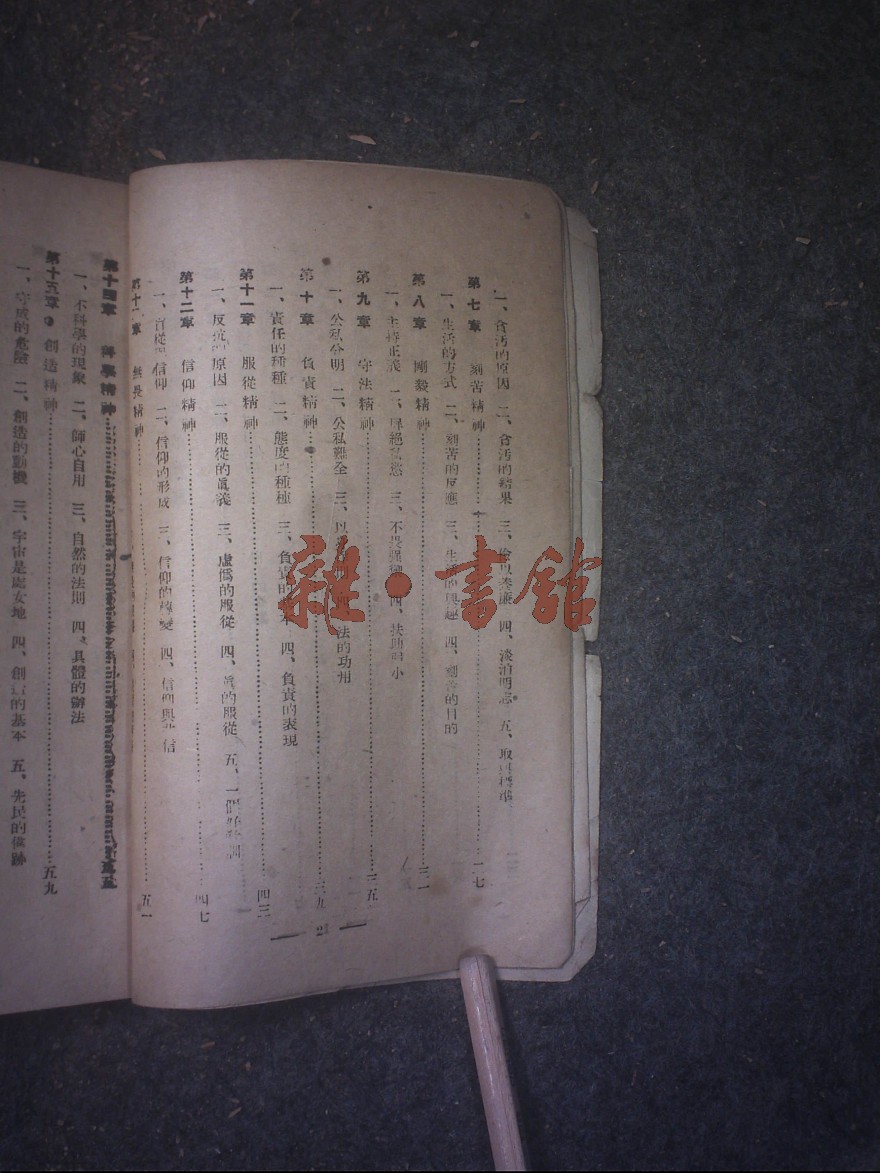 一、貪汚的原因 二、貪汚的結果 三、 四、淡泊明志 五、取
第七章 刻苦精神
一、生活的方式 二、刻苦的反應 三、生活的興趣 四、刻苦的目的
第八章 剛毅精神 三一
一、主持正義 二、屏絕私慾 三、不畏强 四、扶助 小
第九章 守法精神 三五
一、公私分明 二、公私難全 三、以 四、法的功用
第十章 負責精神 三九
一、責任的種種 二、態度的種種 三、負責的基本 四、負責的表現
第十一章 服從精神 四三
一、反抗的原因 二、服從的眞義 三、虛僞的服從 四、眞的服從 五、一個
第十二章 信仰精神 四七
一、盲從與信仰 二、信仰的形成 三、信仰的轉變 四、信仰與 信
第十三章 無畏精神 五一
2
第十四章 科學精神 五五
一、不科學的現象 二、師心自用 三、自然的法則 四、具體的辦法
第十五章 創造精神 五九
一、守成的危險 二、創造的動機 三、宇宙是處女地 四、創造的基本 五、先民的偉跡
雜·書館